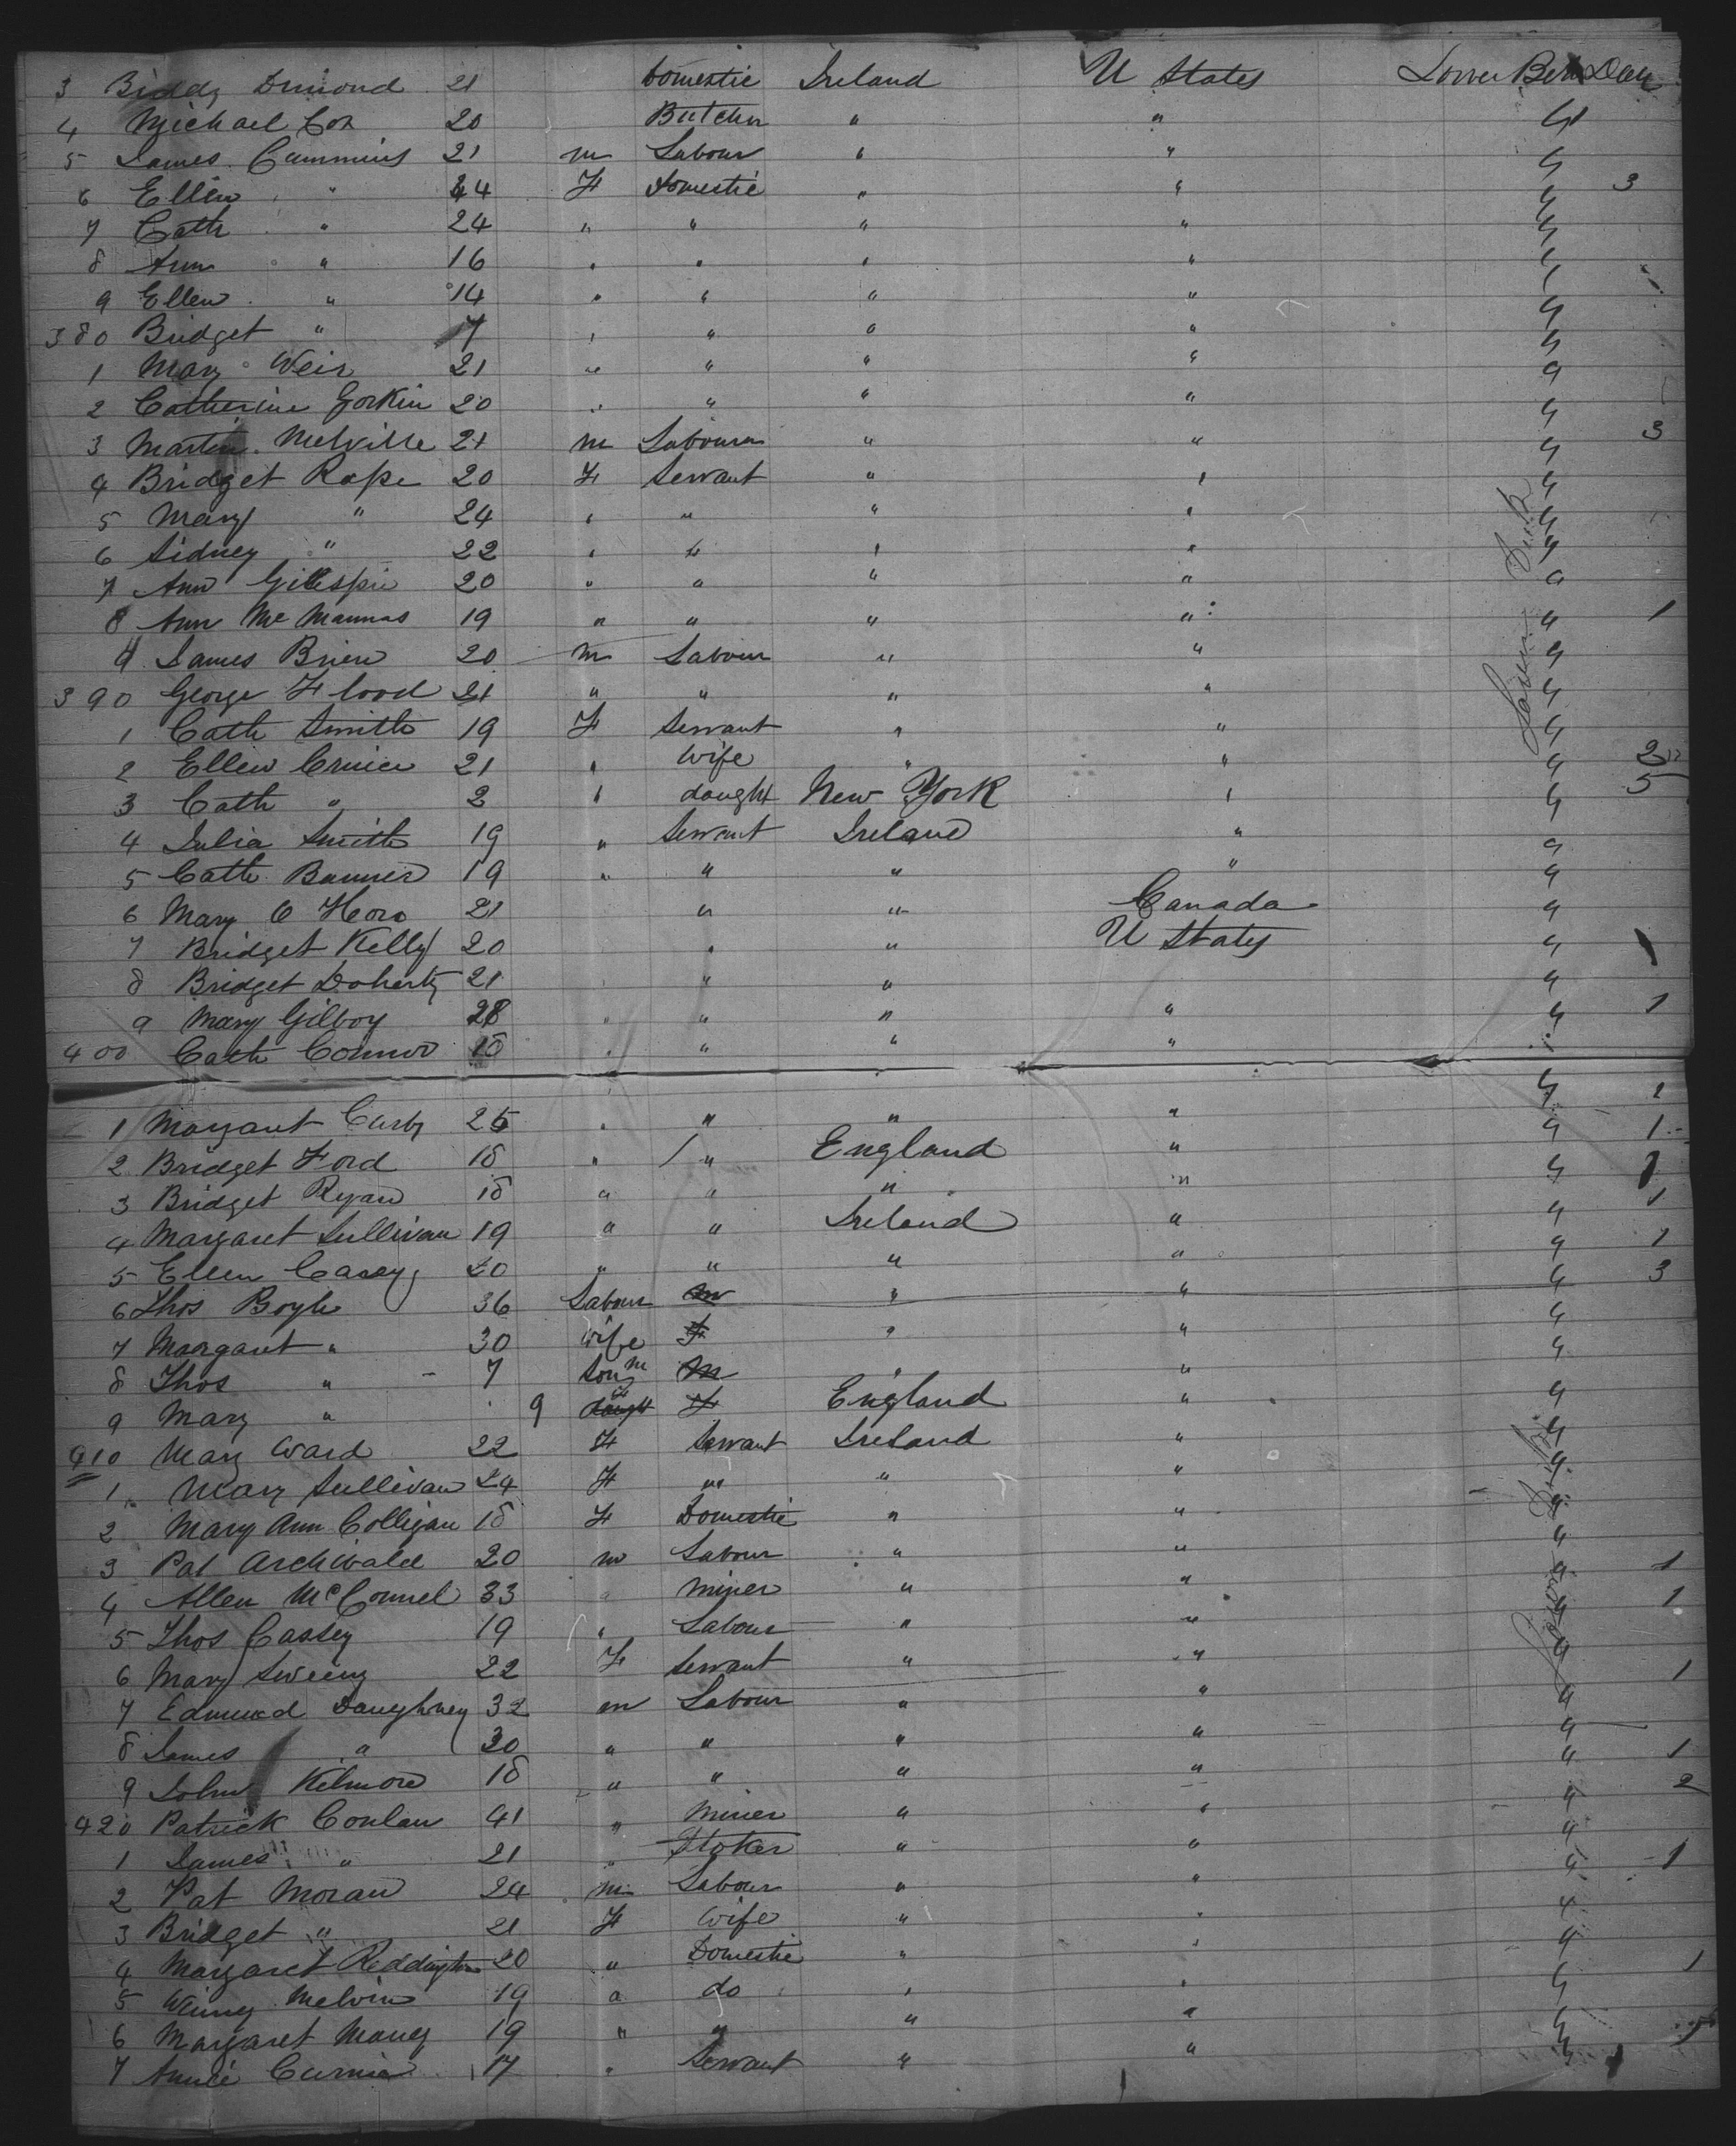 3 Biddy Dimond 21 Domestic Ireland U States Lower Betw Deck
4 Michael Cox 20 Butcher " " "
5 James Cummins 21 m Labour " " "
6 Ellen " 44 F Domestic " " " 3
7 Cath " 24 " " " " "
8 Ann " 16 " " " " "
9 Ellen " 14 " " " " "
380 Bridget " 7 " " " " "
1 Mary Weir 21 " " " " "
2 Catherine Gorkin 20 " " " " "
3 Martin Melville 21 m Labourer " " " 3
4 Bridget Rape 20 F Servant " " "
5 Mary " 24 " " " " "
6 Sidney " 22 " " " " "
7 Ann Gillespie 20 " " " " "
8 Ann McMannas 19 " " " " " 1
9 James Brien 20 m Labour " " "
390 George Flood 21 " " " " "
1 Cath Smith 19 F Servant " " "
2 Ellen Cruice 21 " Wife " " " 2
3 Cath " 2 " daught New York " " 5
4 Julia Smith 19 " Servant Ireland " "
5 Cath Banner 19 " " " " "
6 Mary O Hora 21 " " Canada "
7 Bridget Kelly 20 " " U States " 1
8 Bridget Doherty 21 " " "
9 Mary Gilboy 28 " " " " " 1
400 Cath Connor 18 " " " " "
1 Margaret Curby 25 " " " " " 1
2 Bridget Ford 18 " " England " " 1
3 Bridget Ryan 18 " " " " " 1
4 Margaret Sullivan 19 " " Ireland " " 1
5 Ellen Casey 20 " " " " " 1
6 Thos Boyle 36 Labour m " " " 3
7 Margaret " 30 Wife F " " "
8 Thos " 7 Son m M " " "
9 Mary " 9 daught F England " "
410 Mary Ward 22 F Servant Ireland " "
1 Mary Sullivan 24 F " " " "
2 Mary Ann Colligan 18 F Domestic " " "
3 Pat Archibald 20 m Labour " " " 1
4 Allen McConnel 33 " Miner " " " 1
5 Thos Cassey 19 " Labour " " "
6 Mary Sweeny 22 F Servant " " " 1
7 Edmund Daughney 32 m Labour " " "
8 James " 30 " " " " " 1
9 John Kilmore 18 " " " " " 2
420 Patrick Conlan 41 " Miner " " "
1 James " 21 " Stoker " " " 1
2 Pat Moran 24 m Labour " " "
3 Bridget " 21 F Wife " " "
4 Margaret Reddington 20 " Domestic " " " 1
5 Winny Melvin 19 " do " " "
6 Margaret Maney 19 " " " " " 1
7 Annie Curnia 17 " Servant " " "